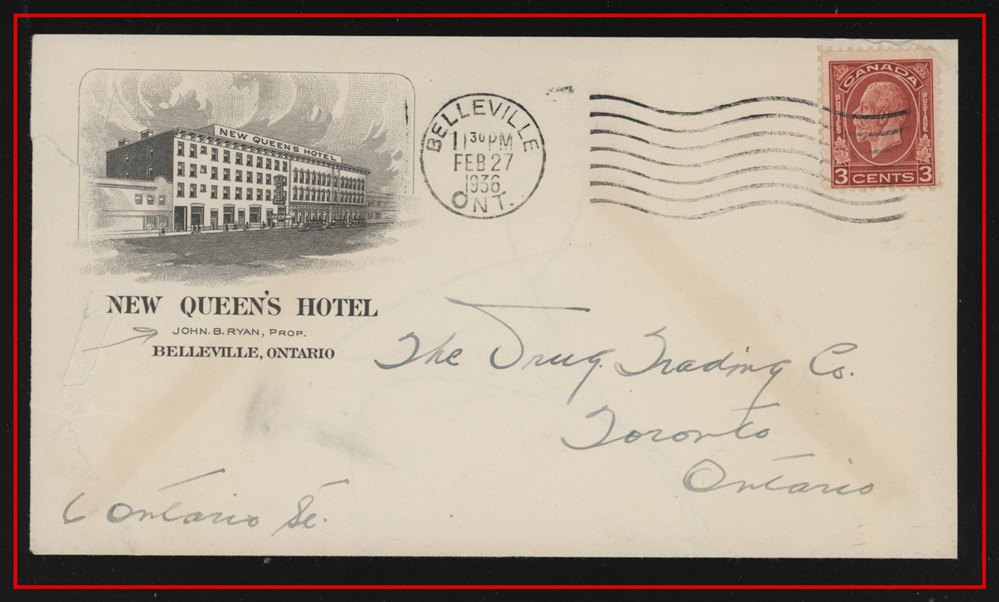 NEW QUEEN'S HOTEL
NEW QUEEN'S HOTEL
JOHN. B. RYAN, PROP.
BELLEVILLE, ONTARIO
BELLEVILLE
11 30 PM
FEB 27
1936
ONT.
CANADA
POSTES
POSTAGE
3 CENTS 3
The Drug Trading Co.
Toronto
Ontario
6 Ontario St.